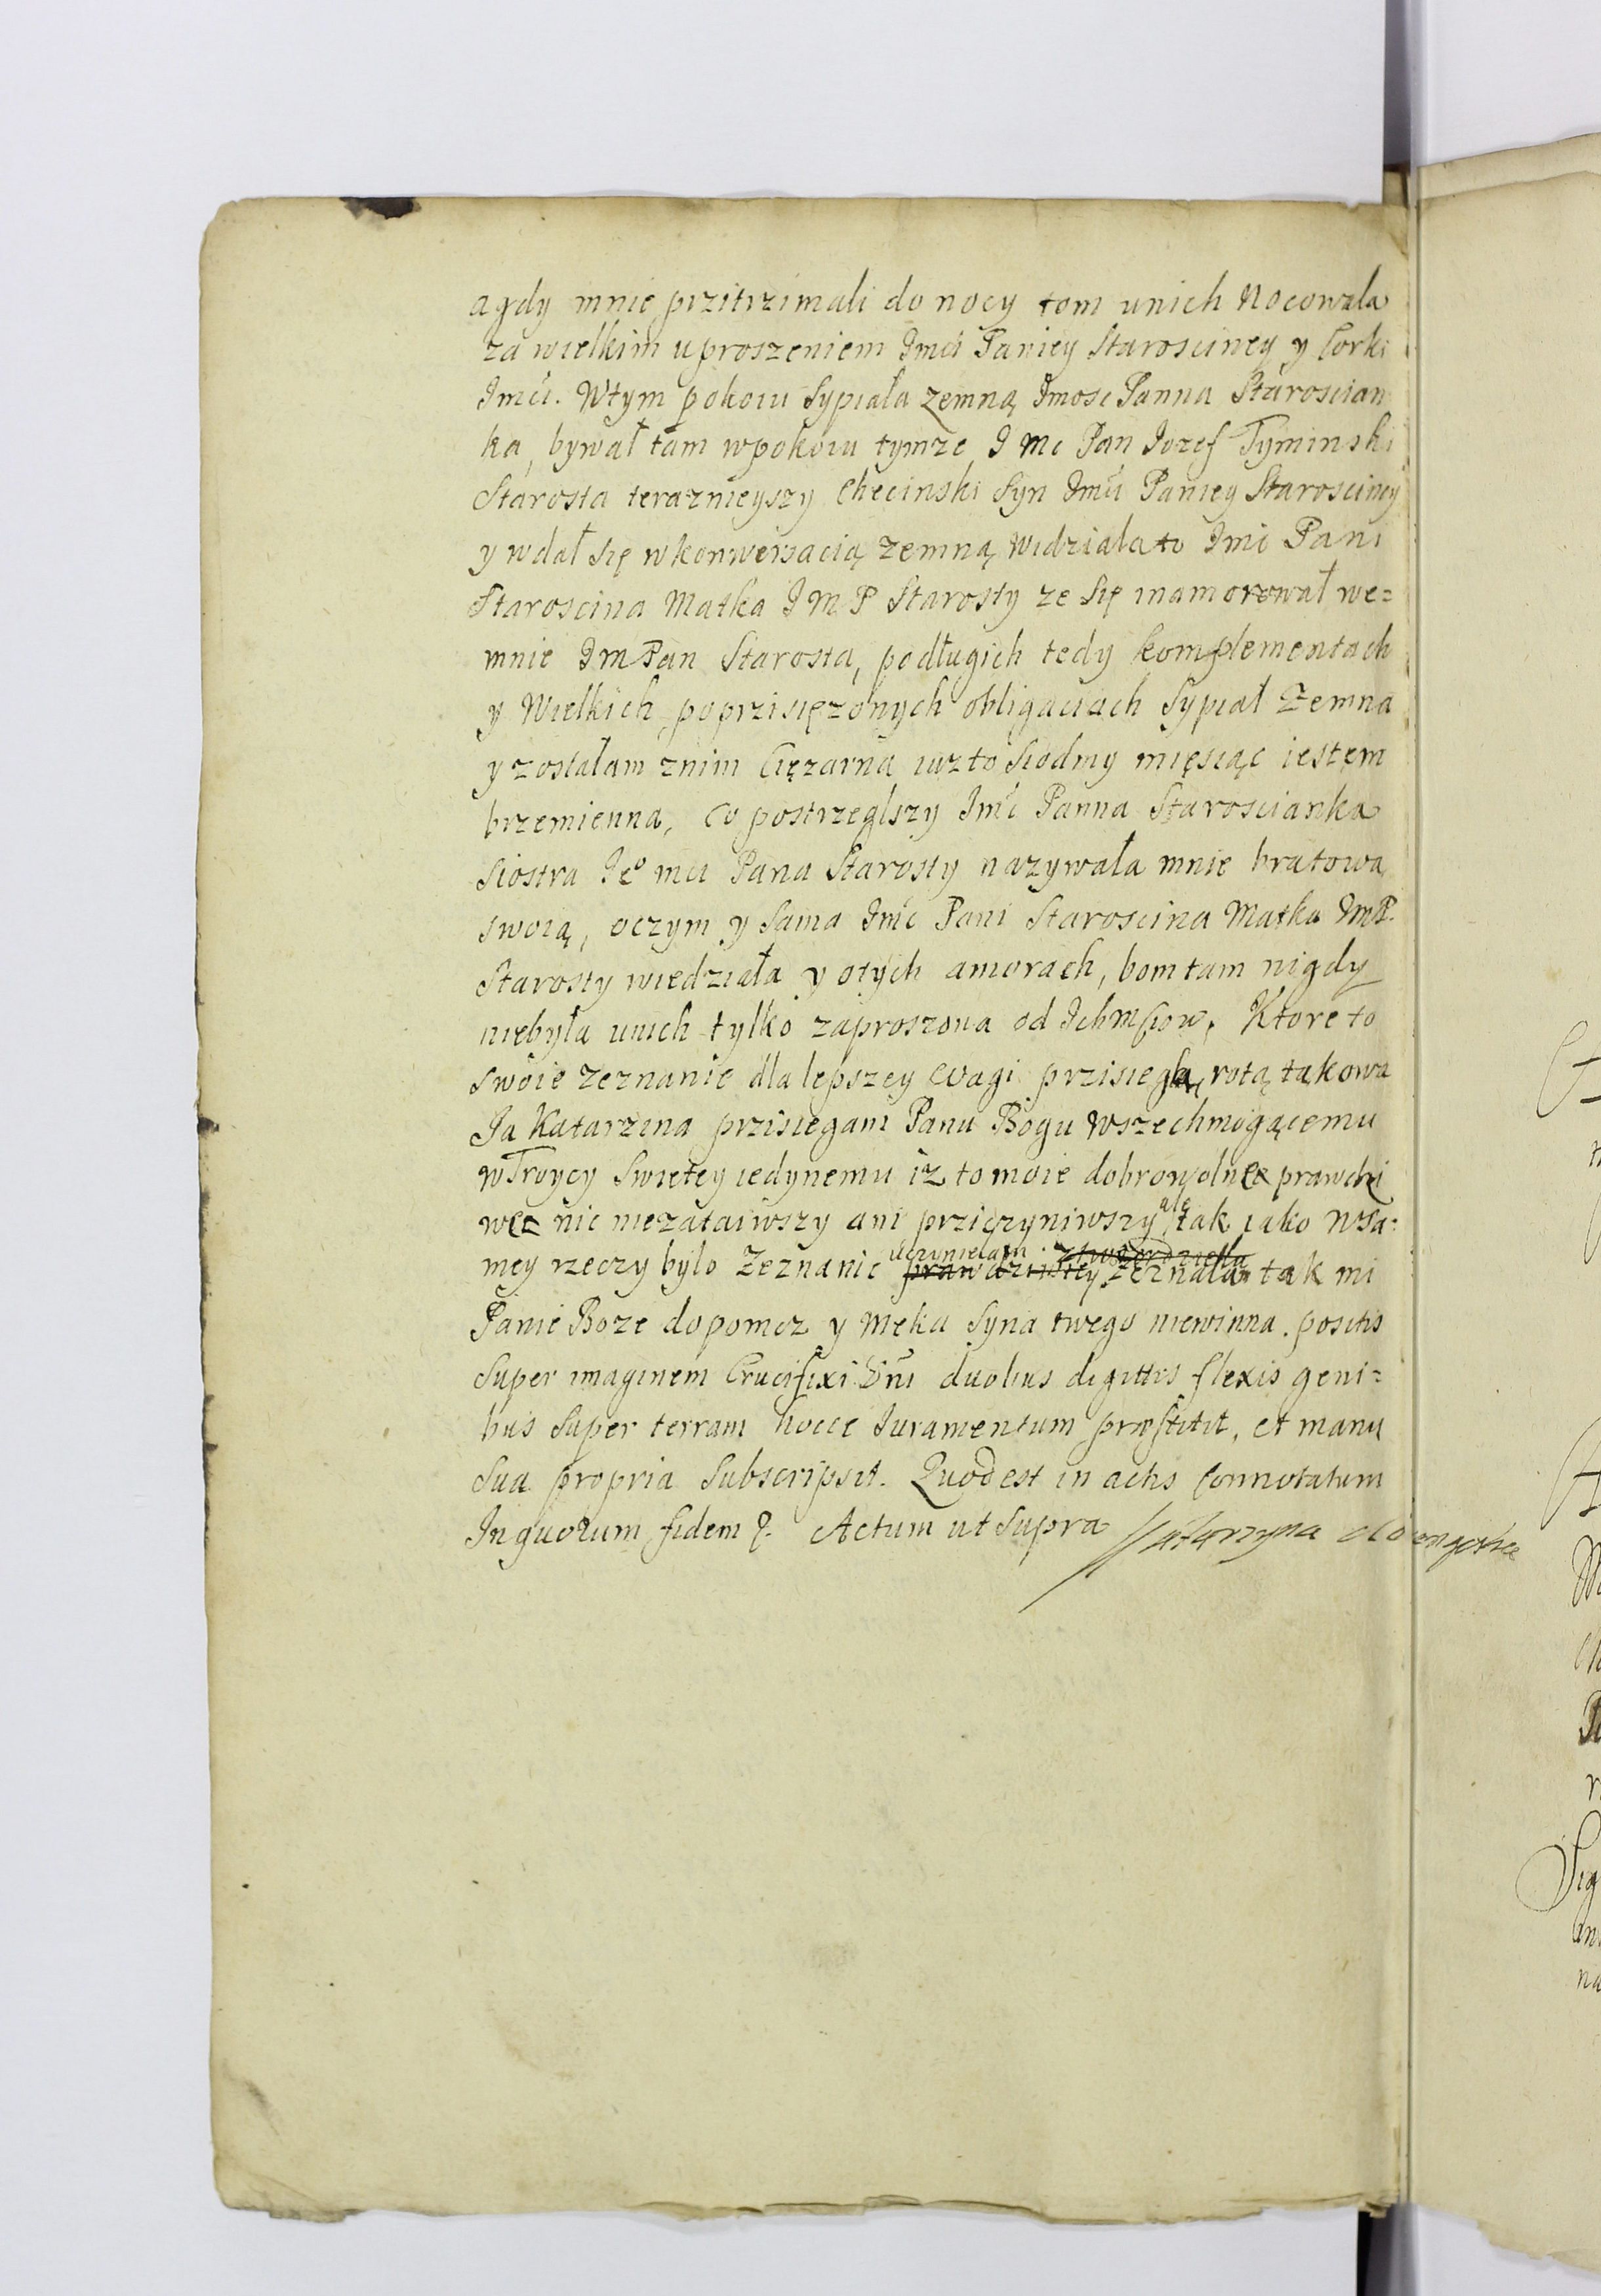 agdy mnie przitrzimali do nocy tom unich Nocowała
za wielkim uproszeniem Imci Paniey Starosciney y Corki
Imci. Wtym pokoiu Sypiała zemną Imosc Panna Starościan
ka, bywał tam wpokoiu tymze I Mc Pan Iozef Tyminski
Starosta teraznieyszy Checinski Syn Imci Paniey Starosciney
y wdał się wkonwersacią zemną widziała to Imc Pani
Staroscina Matka I M P Starosty ze się inamorował we=
mnie I m Pan Starosta, podługich tedy komplementach
y Wielkich poprzisięzonych obligaciach Sypiał Zemna
y zostałam znim Ciężarna iuz to siodmy miesiąc iestem
brzemienna, Co postrzegłszy Imc Panna Starościanka
Siostra Ieo mci Pana Starosty nazywała mnie bratowa
swoią, oczym y sama Imc Pani Staroscina Matka ImP.
Starosty wiedziała y otych amorach, bom tam nigdy
niebyła unich tylko zaproszona od Ichmciow, Ktore to
swoie zeznanie dla lepszey wagi przisiegłą, rotą takową
Ja Katarzina przisiegam Panu Bogu Wszechmogącemu
wTroycy Swietey iedynemu iż to moie dobrowolne prawdzi
we nic niezataiwszy ani prziczyniwszy ale tak iako wsa=
mey rzeczy było Zeznanie uczyniełam prawdziwey zeznałam tak mi
Panie Boze dopomoz y Meka Syna twego niewinna. positis
Super imaginem Crucifixi Dni duobus digittis flexis geni=
bus Super terram hocce Iuramentum præstitit, et manu
Sua propria Subscripsit. Quod est in actis connotatum
In quorum fidem &. Actum ut Supra Katarzyna